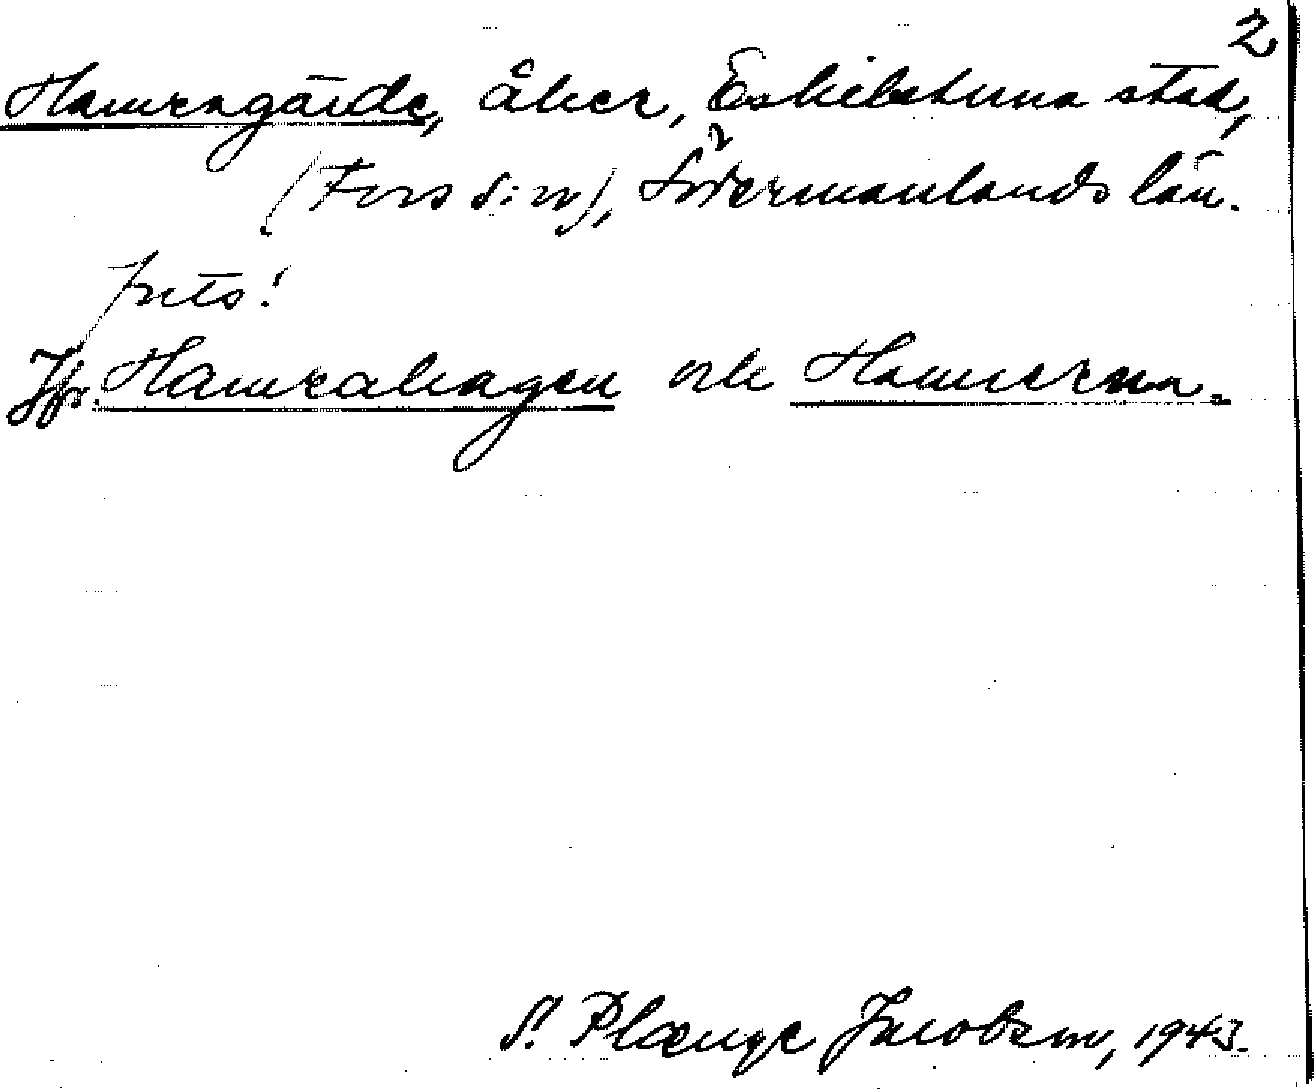 2
Hamragärde, åker, Eskilstuna stad,
(Fors s:n), Södermanlands län.
Jfr. Hamrahagen och Hamrarna.
S. Plænge Jacobson, 1943.